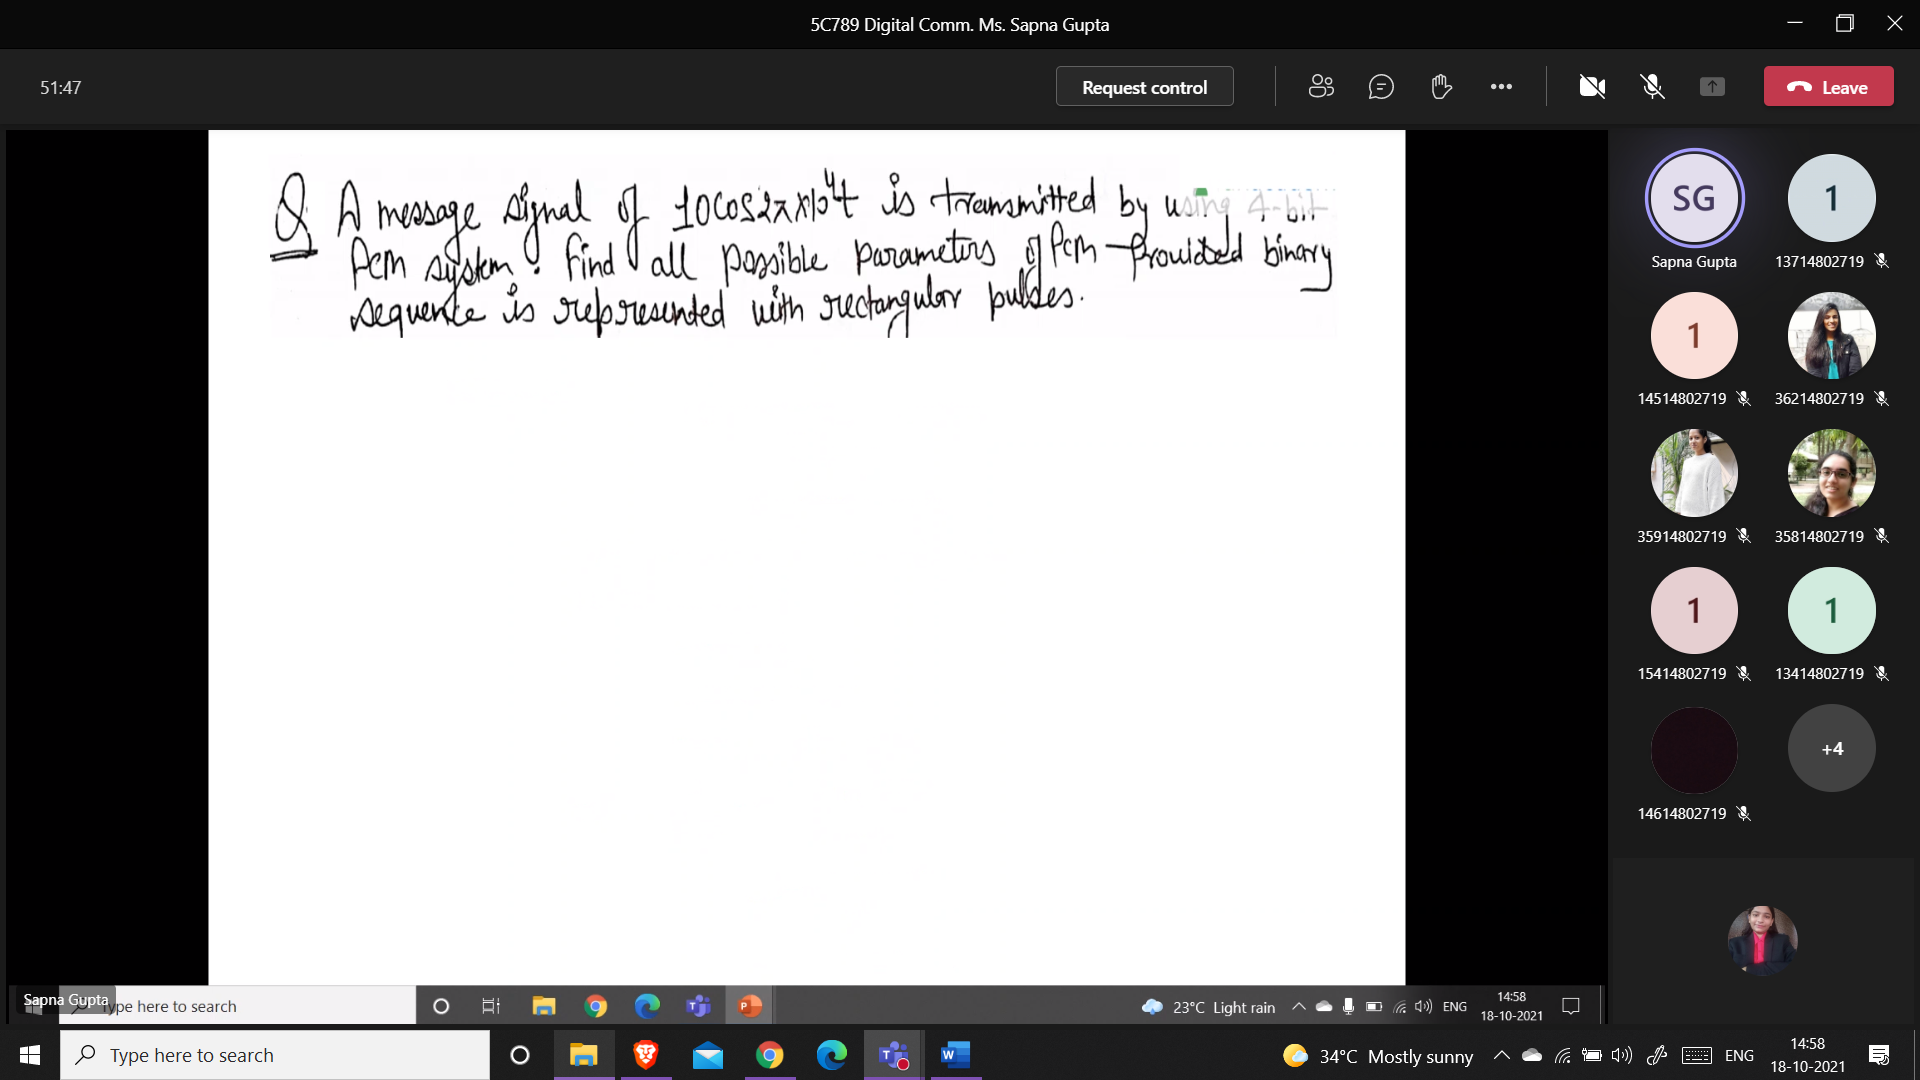 5C789 Digital Comm. Ms. Sapna Gupta
51:47
Request control
Leave
Q A message signal of 10cos2π×10⁴t is transmitted by using 4-bit
Pcm system. Find all possible parameters of Pcm provided binary
sequence is represented with rectangular pulses.
SG
Sapna Gupta
1
13714802719
1
14514802719
36214802719
35914802719
35814802719
1
15414802719
1
13414802719
14614802719
+4
Sapna Gupta
Type here to search
23°C Light rain
ENG
14:58
18-10-2021
Type here to search
34°C Mostly sunny
ENG
14:58
18-10-2021